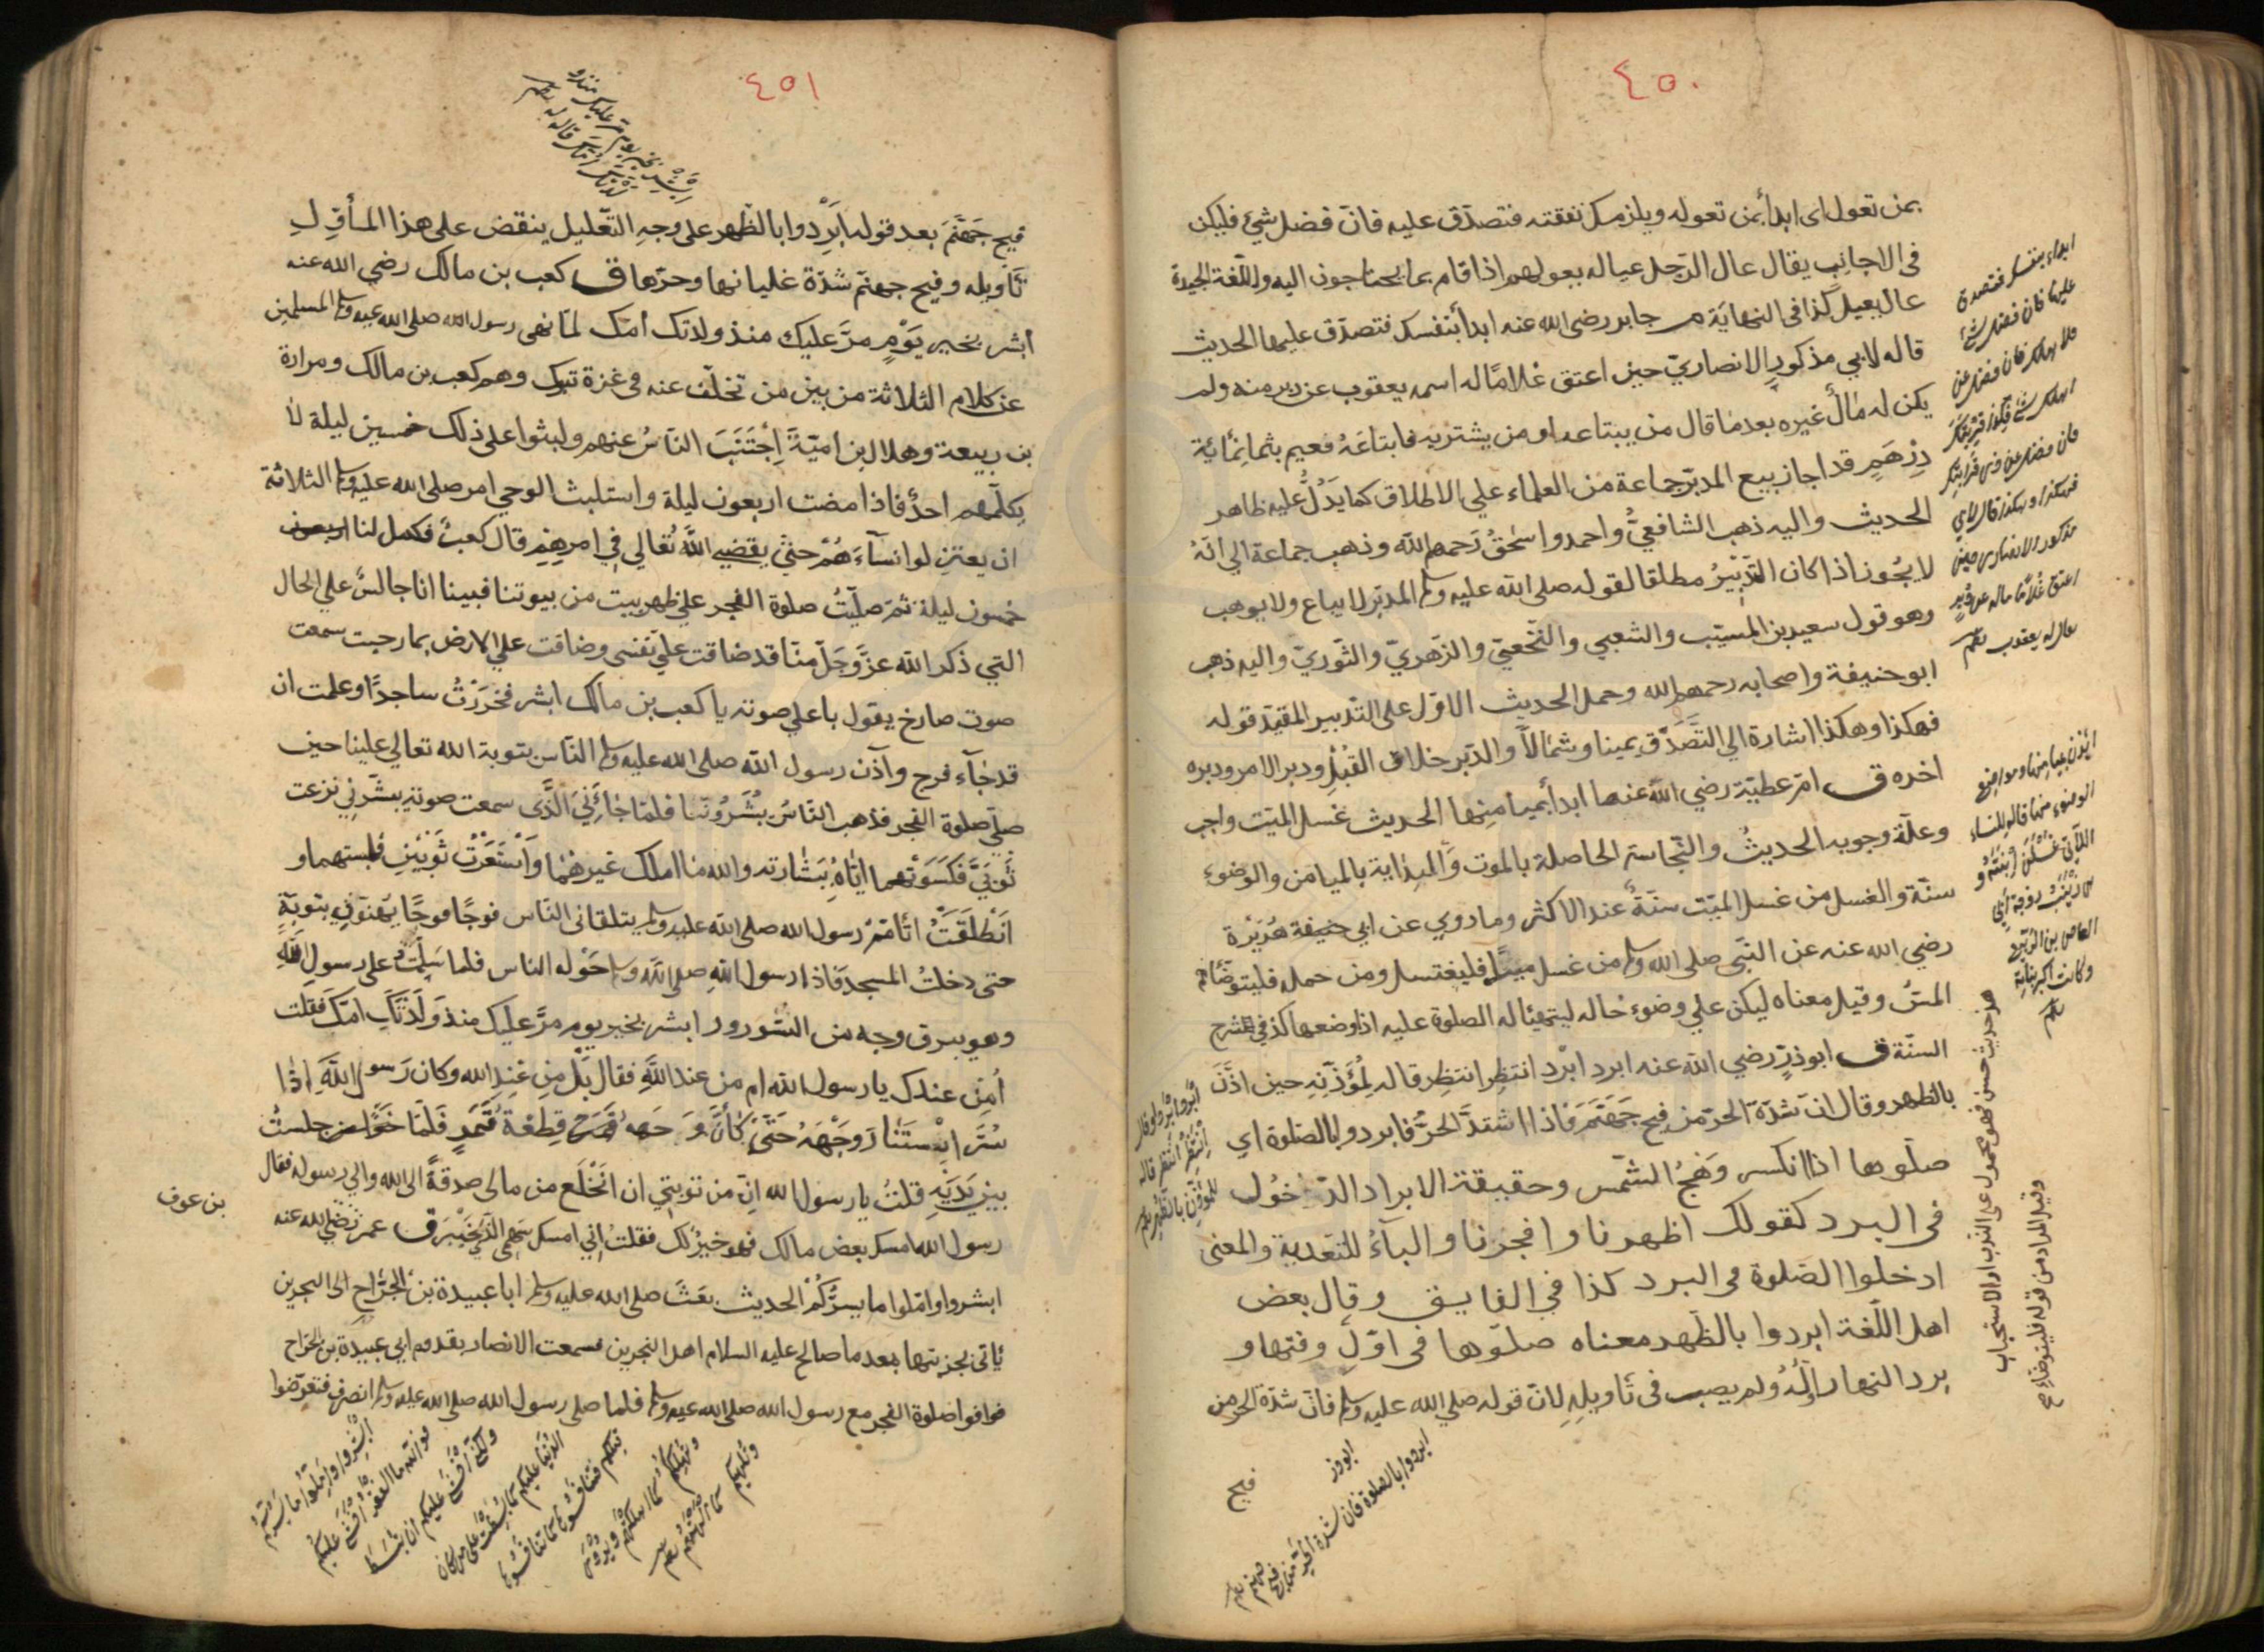 ٤٥٠
بمن تعول اى ابدأ بمن تعوله ويلزمك نفقته فتصدّق عليه فان فضل شيئ فليكن
فى الاجانب يقال عال الرّجل عياله يعولهم اذا قام بما يحتاجون اليه واللّغة الجيدة
عال يعيل كذا فى النهاية م جابر رضى الله عنه ابدأ بنفسك فتصدّق عليها الحديث
قاله لابي مذكورٍ الانصاريّ حين اعتق غلامًا له اسمه يعقوب عن دبر منه ولم
يكن له مالٌ غيره بعدما قال من يبتاعه او من يشتريه فابتاعَهُ نعيم بثمانِمائةِ
دِرْهَمٍ قد اجاز بيع المدبّر جماعة من العلماء علي الاطلاق كما يَدُلُّ عليه ظاهر
الحديث واليه ذهب الشافعيُّ واحمد واسحٰقُ رَحمهم الله وذهب جماعة الى انّهُ
لا يجُوز اذا كان التّدْبيرُ مطلقا لقوله صلى الله عليه وسلم المدبّر لا يباع ولا يوهب
وهو قول سعيد بن المسيّب والشعبي والنّخعيّ والزّهريّ والثّوريّ واليه ذهب
ابو حنيفة واصحابه رحمهم الله وحمل الحديث الاوّل على التّدبير المقيّد قوله
فهكذا وهكذا اشارة الي التَّصَدُّق يمينا وشمالاً والدّبر خلاف القُبُلِ ودبر الامر ودبره
اخره ق امّ عطيّة رضي الله عنها ابدأ بميامنِها الحديث غسل الميّت واجب
وعلّة وجوبه الحديثُ والنّجاسة الحاصلة بالموت والبداية بالميامن والوضوء
سنّة والغسل من غسل الميّت سنّةٌ عند الاكثر وما روي عن ابي حنيفة هُرَيْرة
رضي الله عنه عن النّبي صلى الله وسلم من غسل ميتًا فليغتسل ومن حمله فليتوضّأ
المسّ وقيل معناه ليكن علي وضوء حاله ليتهيئا له الصلوة عليه اذا وضعها كذا في شرح
السنّة ق ابو ذرّ رضي الله عنه ابرد ابرد انتظر انتظر قاله لِمُؤَذّنِهِ حين اذّنَ
بالظهر وقال انّ شدّة الحرّ من فيح جَهَنَّمَ فاذا اشتدَّ الحرُّ فابردوا بالصّلوة اي
صلّوها اذا انكسر وَهَجُ الشّمس وحقيقة الابراد الدّخُول
فى البرد كقولك اظهرنا وافجرنا والباءُ للتّعدية والمعنى
ادخلوا الصّلوة فى البرد كذا في الفايق وقال بعض
اهل اللّغة ابردوا بالظّهر معناه صلّوها فى اوّل وقتها و
برد النهار اوّلُهُ ولم يصب فى تاويله لانّ قوله صلي الله عليه وسلم فانّ شدّة الحر من
فيح
ابدأ بنفسك فتصدق
عليها فان فضل شئ
فلاهلك فان فضل عن
اهلك شئ فلذى قرابتك
فان فضل عن ذى قرابتك
فهكذا وهكذا قال لابي
مذكور الانصارى حين
اعتق غُلامًا ماله عن دُبُرٍ
يقال له يعقوب
ابدأن بميامنها ومواضع
الوضوء منها قاله للنساء
اللاتى غسّلن ابنته
زينب زوجة ابى
العاص بن الربيع
وكانت اكبر بناته
هذا حديث حسن فهو محمول على الندب او الاستحباب
وقيل المراد من قوله فليتوضاء
ابرد ابرد او قال
انتظر انتظر قاله
للمؤذن بالظهر
ابو ذر
ابردوا بالصلوة فان شدة الحر من فيح
جهنم
٤٥١
ابشر بخير يوم مر عليك منذ
ولدتك امك قاله له
فيح جَهَنَّمَ بعد قوله ابردوا بالظّهر على وجهِ التّعليل ينقض على هذا المأوّلِ
تأويله وفيح جهنّم شدّة غليانها وحرّها ق كعب بن مالك رضي الله عنه
أبشر بخير يَوْمٍ مرَّ عليك منذ ولدتك امّك لمّا نهى رسول الله صلى الله عليه وسلم المسلمين
عن كلام الثلاثة من بين من تخلّف عنه فى غزة تبوك وهم كعب بن مالك ومرارة
بن ربيعة وهلال بن اميّةَ اِجْتَنَبَ النّاسُ عنهم ولبثوا على ذلك خمسين ليلة لا
يكلّمهم احدٌ فاذا مضت اربعون ليلة واستلبث الوحي امر صلى الله عليه وسلم الثلاثة
ان يعتزلوا نسآءَهُمْ حتّٰى يقضي اللهُ تعالي في امرِهِمْ قال كعبٌ فكمل لنا اربعون
خمسون ليلة ثمّ صلّيتُ صلوة الفجر علي ظهر بيت من بيوتنا فبينا انا جالسٌ علي الحال
التي ذكر الله عزَّ وَجَلّ منّا قد ضاقت علي نفسى وضاقت علي الارض بما رحبت سمعت
صوت صارخ يقول باعلي صوته يا كعب بن مالك ابشر فخررْتُ ساجدًا وعلمت ان
قد جاء فرج وآذن رسول الله صلى الله عليه وسلم النّاس بتوبة الله تعالي علينا حين
صلّى صلوة الفجر فذهب النّاسُ يُبَشِّرُونَنا فلمّا جاءَنِيَ الّذى سمعت صوته يبشّرني نزعت
ثَوبَيَّ فكسَوتُهما ايّاهُ بِبَشارته والله ما املك غيرهُما وَاسْتَعَرْتُ ثوبَيْنِ فلبستهما و
انطلَقَتُ اتامّمُ رسول الله صلى الله عليه وسلم يتلقانى النّاس فوجًا فوجًا يُهَنّوني بتوبةٍ
حتى دخلتُ المسجد فاذا رسول الله صلى الله وسلم حَوْله الناس فلما سَلّمْتُ على رسول الله
وهو يبرق وجهه من السّرور ابشر بخير يوم مرَّ عليك منذ وَلَدَتْكَ امّك فقلت
أمِن عندك يا رسول الله ام من عند اللهِ فقال بَلْ من عندِ الله وكان رَسول اللهِ اذا
سُرَّ اِسْتَنارَ وَجْهَهُ حَتّٰى كأنَّ وَجهه قِطعَةُ قَمَرٍ فَلَمّا جلستُ
بين يَدَيْهِ قلتُ يا رسول الله انّ من توبتِي ان اَنْخَلَعَ من مالى صدقةً الى الله والي رسوله فقال
رسول الله امسك بعض مالك فهو خيرٌ لك فقلتُ اِنّي امسك سَهمى الذي بخَيْبَر ق عمر رضي الله عنه
بن عوف
ابشروا وامّلوا ما يسرُّكُمْ الحديث بعَثَ صلى الله عليه وسلم ابا عبيدة بن الجرّاح الى البحرين
يأتى بجزيتها بعد ما صالح عليه السلام اهل البحرين فسمعت الانصار بقدوم ابي عبيدة بن الجرّاح
فوافوا صلوة الفجر مع رسول الله صلى الله عليه وسلم فلما صلى رسول الله صلى الله عليه وسلم انصرف فتعرّضوا
ابشروا واملوا ما يسركم
فوالله ما الفقر اخشى عليكم
ولكن اخشى عليكم ان تبسط
الدنيا عليكم كما بسطت على من كان
قبلكم فتنافسوها كما تنافسوها
وتهلككم كما اهلكتهم ويروى
وتلهيكم كما الهتهم